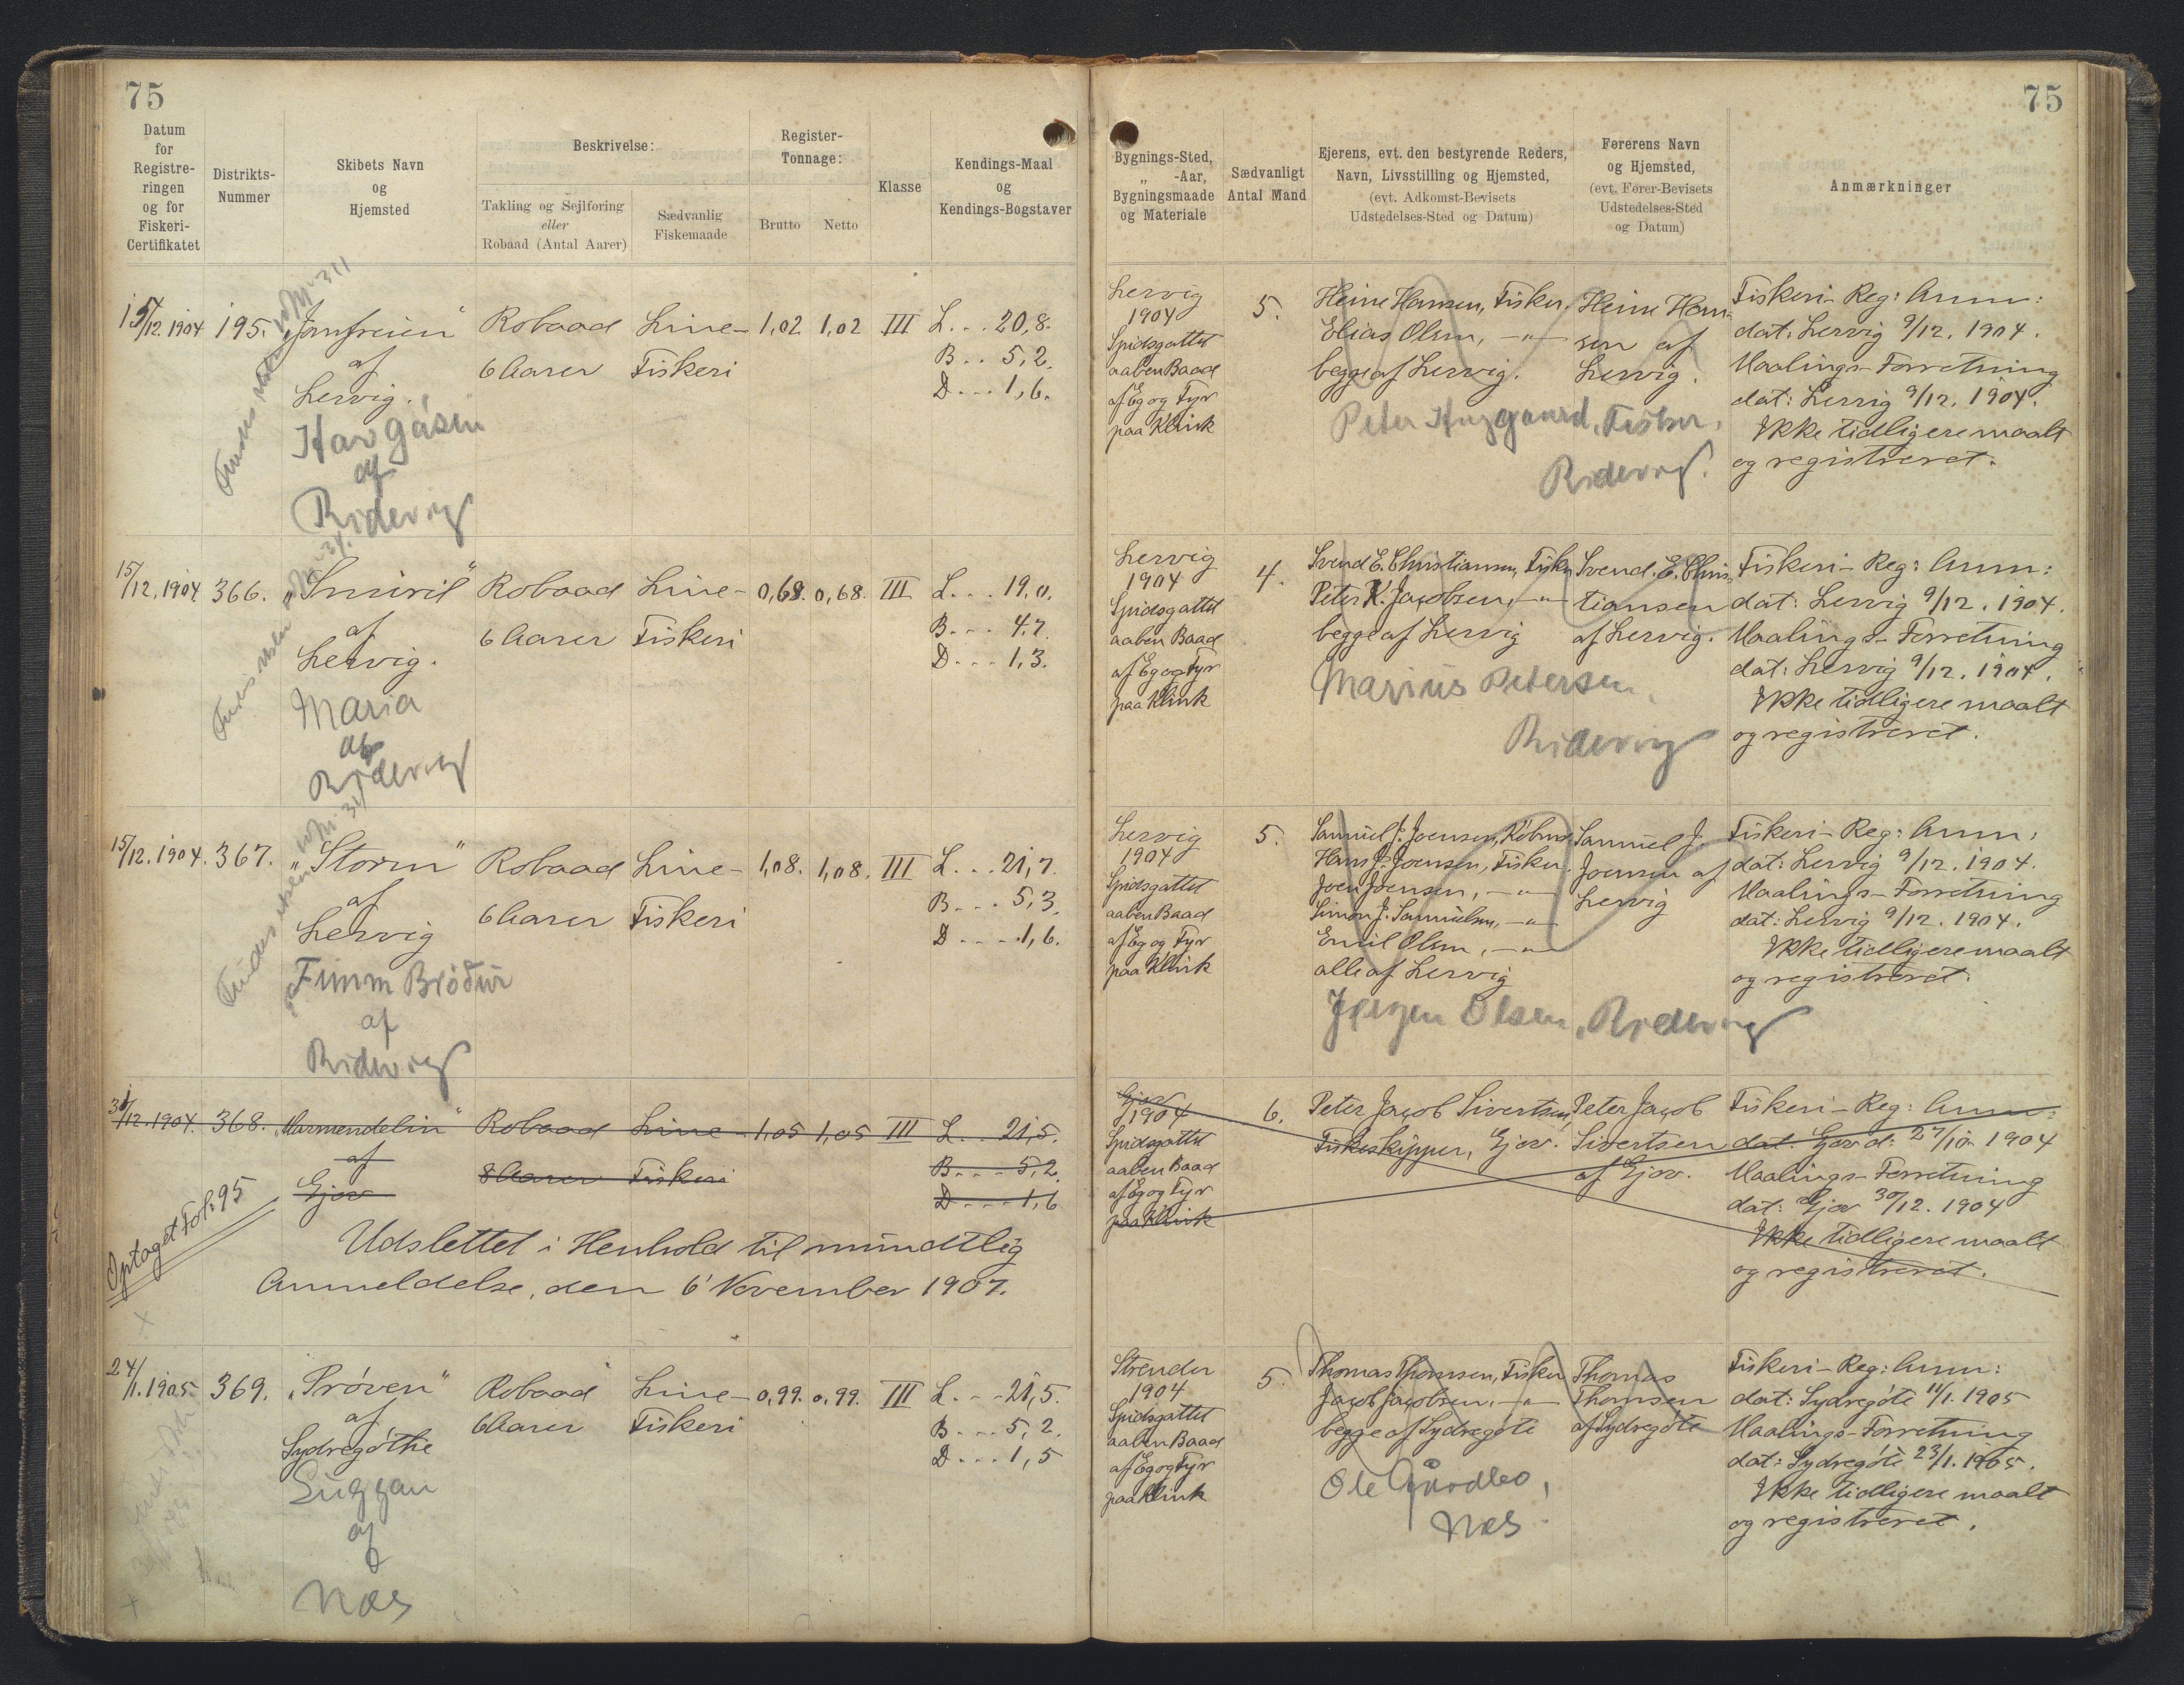 75
Datum
for
Registre-
ringen
og for
Fiskeri-
Certifikatet
Distrikts-
Nummer
Skibets Navn
og
Hjemsted
Beskrivelse:
Takling og Sejlføring
eller
Robaad (Antal Aarer)
Sædvanlig
Fiskemaade
Register-
Tonnage:
Brutto
Netto
Klasse
Kendings-Maal
og
Kendings-Bogstaver
15/12. 1904 195. „Jomfruen“ Robaad Line- 1,02 1,02 III L. . . 20,8.
af 6 Aarer Fiskeri B. . . 5,2.
Lervig. D. . . 1,6.
Havgásin
af
Ridevig
15/12. 1904. 366. „Smiril“ Robaad Line- 0,68. 0,68. III L. . . 19,0.
af 6 Aarer Fiskeri B. . . 4,7.
Lervig. D. . . 1,3.
Maria
af
Ridevig
15/12. 1904. 367. „Storm“ Robaad Line- 1,08. 1,08. III L. . . 21,7.
af 6 Aarer Fiskeri B. . . 5,3.
Lervig D. . . 1,6.
Fimm Brøður
af
Ridevig
/12. 1904. 368. „Marmendelin“ Robaad Line- 1,05 1,05 III L. . 21,5.
af 8 Aarer Fiskeri B. . . 5,2.
Gjov D. . . 1,6
Optaget Fol: 95
Udslettet i Henhold til mundtlig
Anmeldelse, den 6' November 1907.
24/1. 1905. 369. „Prøven“ Robaad Line- 0,99. 0,99. III L. . . 21,5.
af 6 Aarer Fiskeri B. . . 5,2.
Sydregøthe D. . . 1,5
af
Næs
75
Bygnings-Sted,
„ -Aar,
Bygningsmaade
og Materiale
Sædvanligt
Antal Mand
Ejerens, evt. den bestyrende Reders,
Navn, Livsstilling og Hjemsted,
(evt. Adkomst-Bevisets
Udstedelses-Sted og Datum)
Førerens Navn
og Hjemsted,
(evt. Fører-Bevisets
Udstedelses-Sted
og Datum)
Anmærkninger
Lervig
1904
Spidsgattet
aaben Baad
af Eg og Fyr
paa Klink
5.
Heine Hansen, Fisker.
Elias Olsen, —„—
begge af Lervig.
Peter Fisker.
Ridevig.
Heine Han-
sen af
Lervig.
Fiskeri-Reg: Anm:
dat: Lervig 9/12. 1904.
Maalings-Forretning
dat: Lervig 9/12. 1904.
Ikke tidligere maalt
og registreret.
Lervig
1904
Spidsgattet
aaben Baad
af Eg og Fyr
paa Klink
4.
Svend E. Christiansen, Fisker
Peter K. Jacobsen, —„—
begge af Lervig
Marius Petersen,
Ridevig
Svend. E. Chris-
tiansen
af Lervig.
Fiskeri-Reg: Anm:
dat: Lervig 9/12. 1904.
Maalings-Forretning
dat: Lervig 9/12. 1904.
Ikke tidligere maalt
og registreret.
Lervig
1904
Spidsgattet
aaben Baad
af Eg og Fyr
paa Klink
5.
Samuel J. Joensen,
Hans J. Joensen, Fisker.
Joen Joensen, —„—
Simon J. Samuelsen, —„—
Emil Olsen, —„—
alle af Lervig
Jørgen Olsen, Ridevig
Samuel J.
Joensen af
Lervig
Fiskeri-Reg: Anm:
dat: Lervig 9/12. 1904.
Maalings-Forretning
dat: Lervig 9/12. 1904.
Ikke tidligere maalt
og registreret.
Gjov
1904
Spidsgattet
aaben Baad
af Eg og Fyr
paa Klink
6.
Peter Jacob Sivertsen,
Fiskeskipper, Gjov.
Peter Jacob
Sivertsen
af Gjov.
Fiskeri-Reg: Anm:
dat: Gjov d: 27/10 1904
Maalings-Forretning
dat: Gjov 30/12. 1904
Ikke tidligere maalt
og registreret.
Strender
1904
Spidsgattet
aaben Baad
af Eg og Fyr
paa Klink
5.
Thomas Thomsen, Fisker
Jacob Jacobsen, —„—
begge af Sydregøte
Ole
Næs
Thomas
Thomsen
af Sydregøte
Fiskeri-Reg: Anm:
dat: Sydregøte 11/1. 1905
Maalings-Forretning
dat: Sydregøte 23/1. 1905.
Ikke tidligere maalt
og registreret.